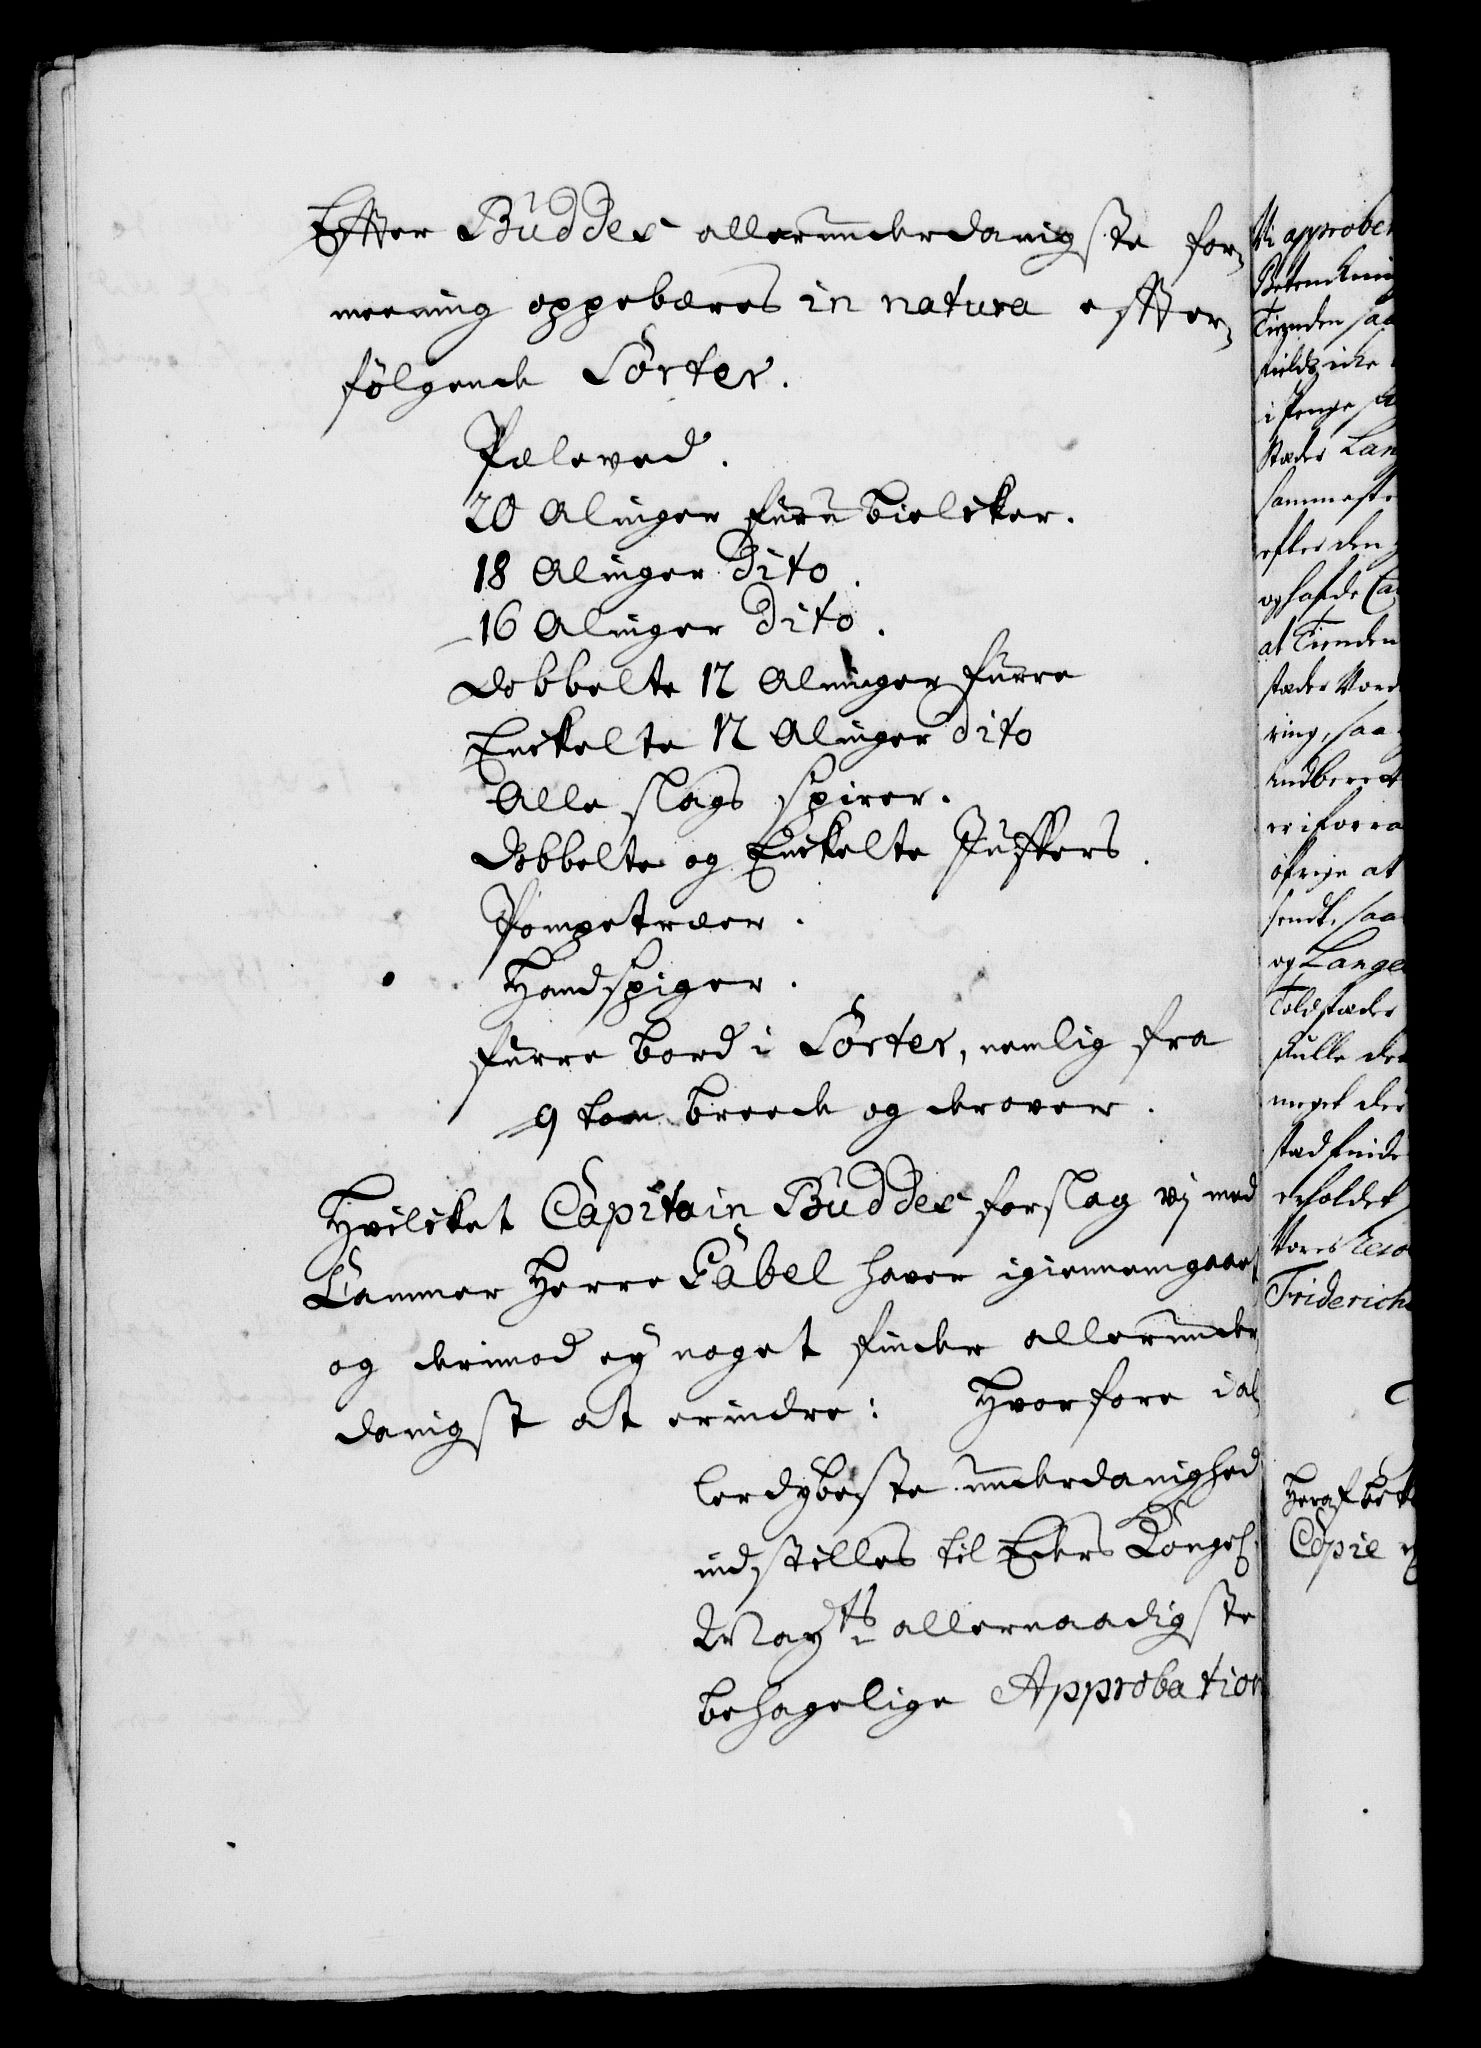 Effter Buddes allerunderdanigste for¬
meening oppebæres in natura effter¬
følgende Sorter.
Pæleved.
20 Alinger furu bielcker.
18 Alinger Dito.
16 Alinger Dito.
Dobbelte 12 Alninger furre
Enckelte 12 Alinger dito
Alle slags spirer.
Dobbelte og Enckelte Juffers.
Pompetræer.
Handspiger.
furre bord i Sorter, nemlig fra
9 tom breede og derover.
Hvilcket Capitain Buddes forslag vj med
Cammer Herre Gabel haver igiennemgaaet
og derimod ey noget finder allerunder
danigst at erindre: Hvorfore i al
lerdybeste underdanighed
indstilles til Eders Kongel.
Mayts allernaadigste
behagelige Approbation
Vi approber
Betenckni
Tienden saa
fieldz icke
i Penge sa
Stæder Lan
sammeste
efter den
og hafde Ca
at Tienden
stæder Vor
ring, saa
Andberet
er i forra
öfrige at
sendt, saa
og Lange
Toldstæder
skulle der
meget der
stad finde
erholdet
Vores Reso
Friderichs
Heraf bet
Copie